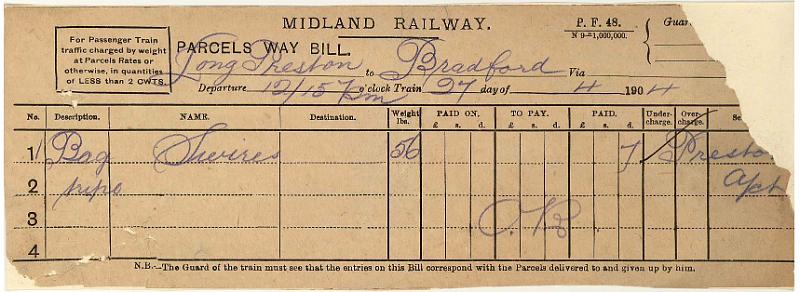 MIDLAND RAILWAY.
P. F. 48.
N 9—1,000,000.
Guar
For Passenger Train
traffic charged by weight
at Parcels Rates or
otherwise, in quantities
of LESS than 2 CWTS.
PARCELS WAY BILL.
Long Preston to Bradford Via
Departure 12/15 o'clock Train 27 day of 4 1904
No. Description. NAME. Destination. Weight lbs. PAID ON. TO PAY. PAID. Under-charge. Over-charge.
£ s. d. £ s. d. £ s. d.
1 Bag 56 7 Presto
2
3
4
N.B.—The Guard of the train must see that the entries on this Bill correspond with the Parcels delivered to and given up by him.